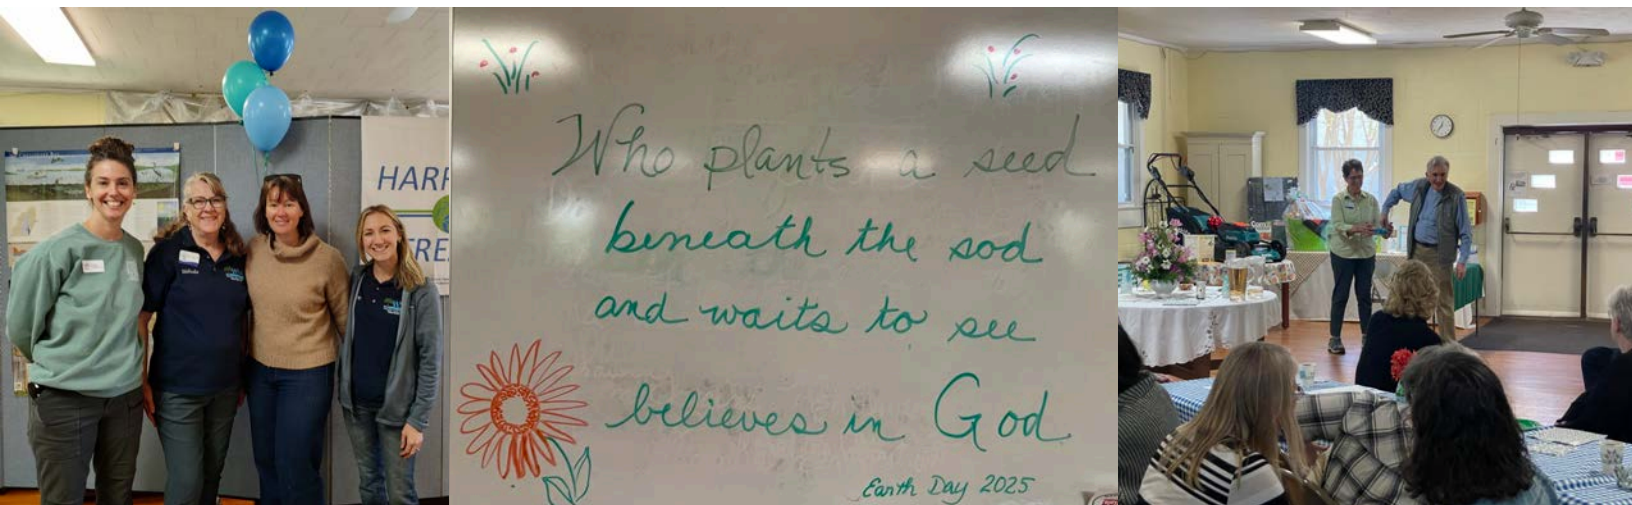 HARR
TRE
Who plants a seed
beneath the sod
and waits to see
believes in God
Earth Day 2025